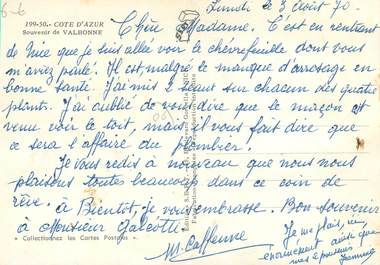 6-6
199-50. - COTE D'AZUR
Souvenir de VALBONNE
Lundi le 3 Août 70.
Chère Madame. C'est en rentrant
de Nice que je suis allée voir le chèvrefeuille dont vous
m'aviez parlé. Il est, malgré le manque d'arrosage en
bonne santé. J'ai mis 1 seau sur chacun des quatre
plants. J'ai oublié de vous dire que le maçon est
venu voir le toit, mais il vous fait dire que
ce sera l'affaire du plombier.
Je vous redis à nouveau que nous nous
plaisons toutes beaucoup dans ce coin de
rêve. à Bientôt, je vous embrasse. Bon souvenir
à Monsieur Galeotti.
« Collectionnez les Cartes Postales »
Je me plais, ici
énormément ainsi que
mes